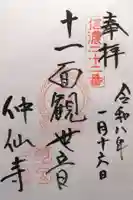 奉拝
信濃二十二番
令和八年
一月十六日
十一面観世音
仲仙寺